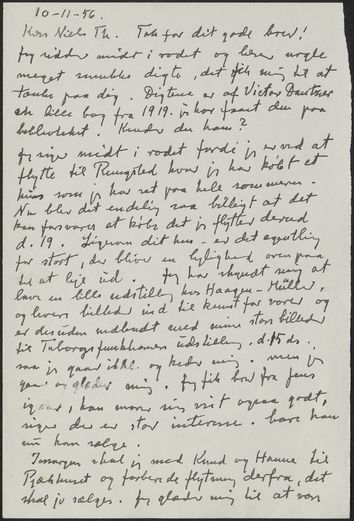 10-11-56.
Kære Niels Th. Tak for dit gode brev!
Jeg sidder midt i rodet og læser nogle
meget smukke digte, det fik mig til at
tænke paa dig. Digtene er af Victor
en lille bog fra 1919. jeg har faaet den paa
biblioteket. Kender du ham?
Jeg siger midt i rodet fordi jeg er ved at
flytte til Rungsted hvor jeg har købt et
hus som jeg har set paa hele sommeren.
Nu blev det endelig saa billigt at det
kan forsvares at købe det jeg flytter derud
d. 19. Ligesom dit hus - er det egentlig
for stort, der bliver en lejlighed ovenpaa
til at leje ud. Jeg har skyndt mig at
lave en lille udstilling hos Haagen-Müller,
og levere billeder ind til kunst for varer og
er desuden indbudt med store billeder
til Tuborgfunkionens udstilling. d. 15 ds.
saa jeg gaar ikke og keder mig. men jeg
gaar og glæder mig. Jeg fik brev fra Jens
igaar, han morer sig vist ogsaa godt,
siger der er stor interesse. bare han
nu kan sælge.
Imorgen skal jeg med Knud og Hanne til
og forberede flytning derfra, det
skal jo sælges. Jeg glæder mig til at